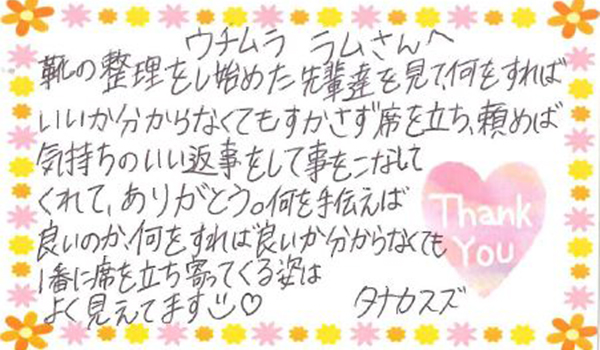 ウチムラ ラムさんへ
靴の整理をし始めた先輩達を見て、何をすれば
いいか分からなくてもすかさず席を立ち、頼めば
気持ちのいい返事をして事をこなして
くれて、ありがとう。何を手伝えば
良いのか、何をすれば良いか分からなくても
1番に席を立ち寄ってくる姿は
よく見えてます
タナカスズ
Thank
You